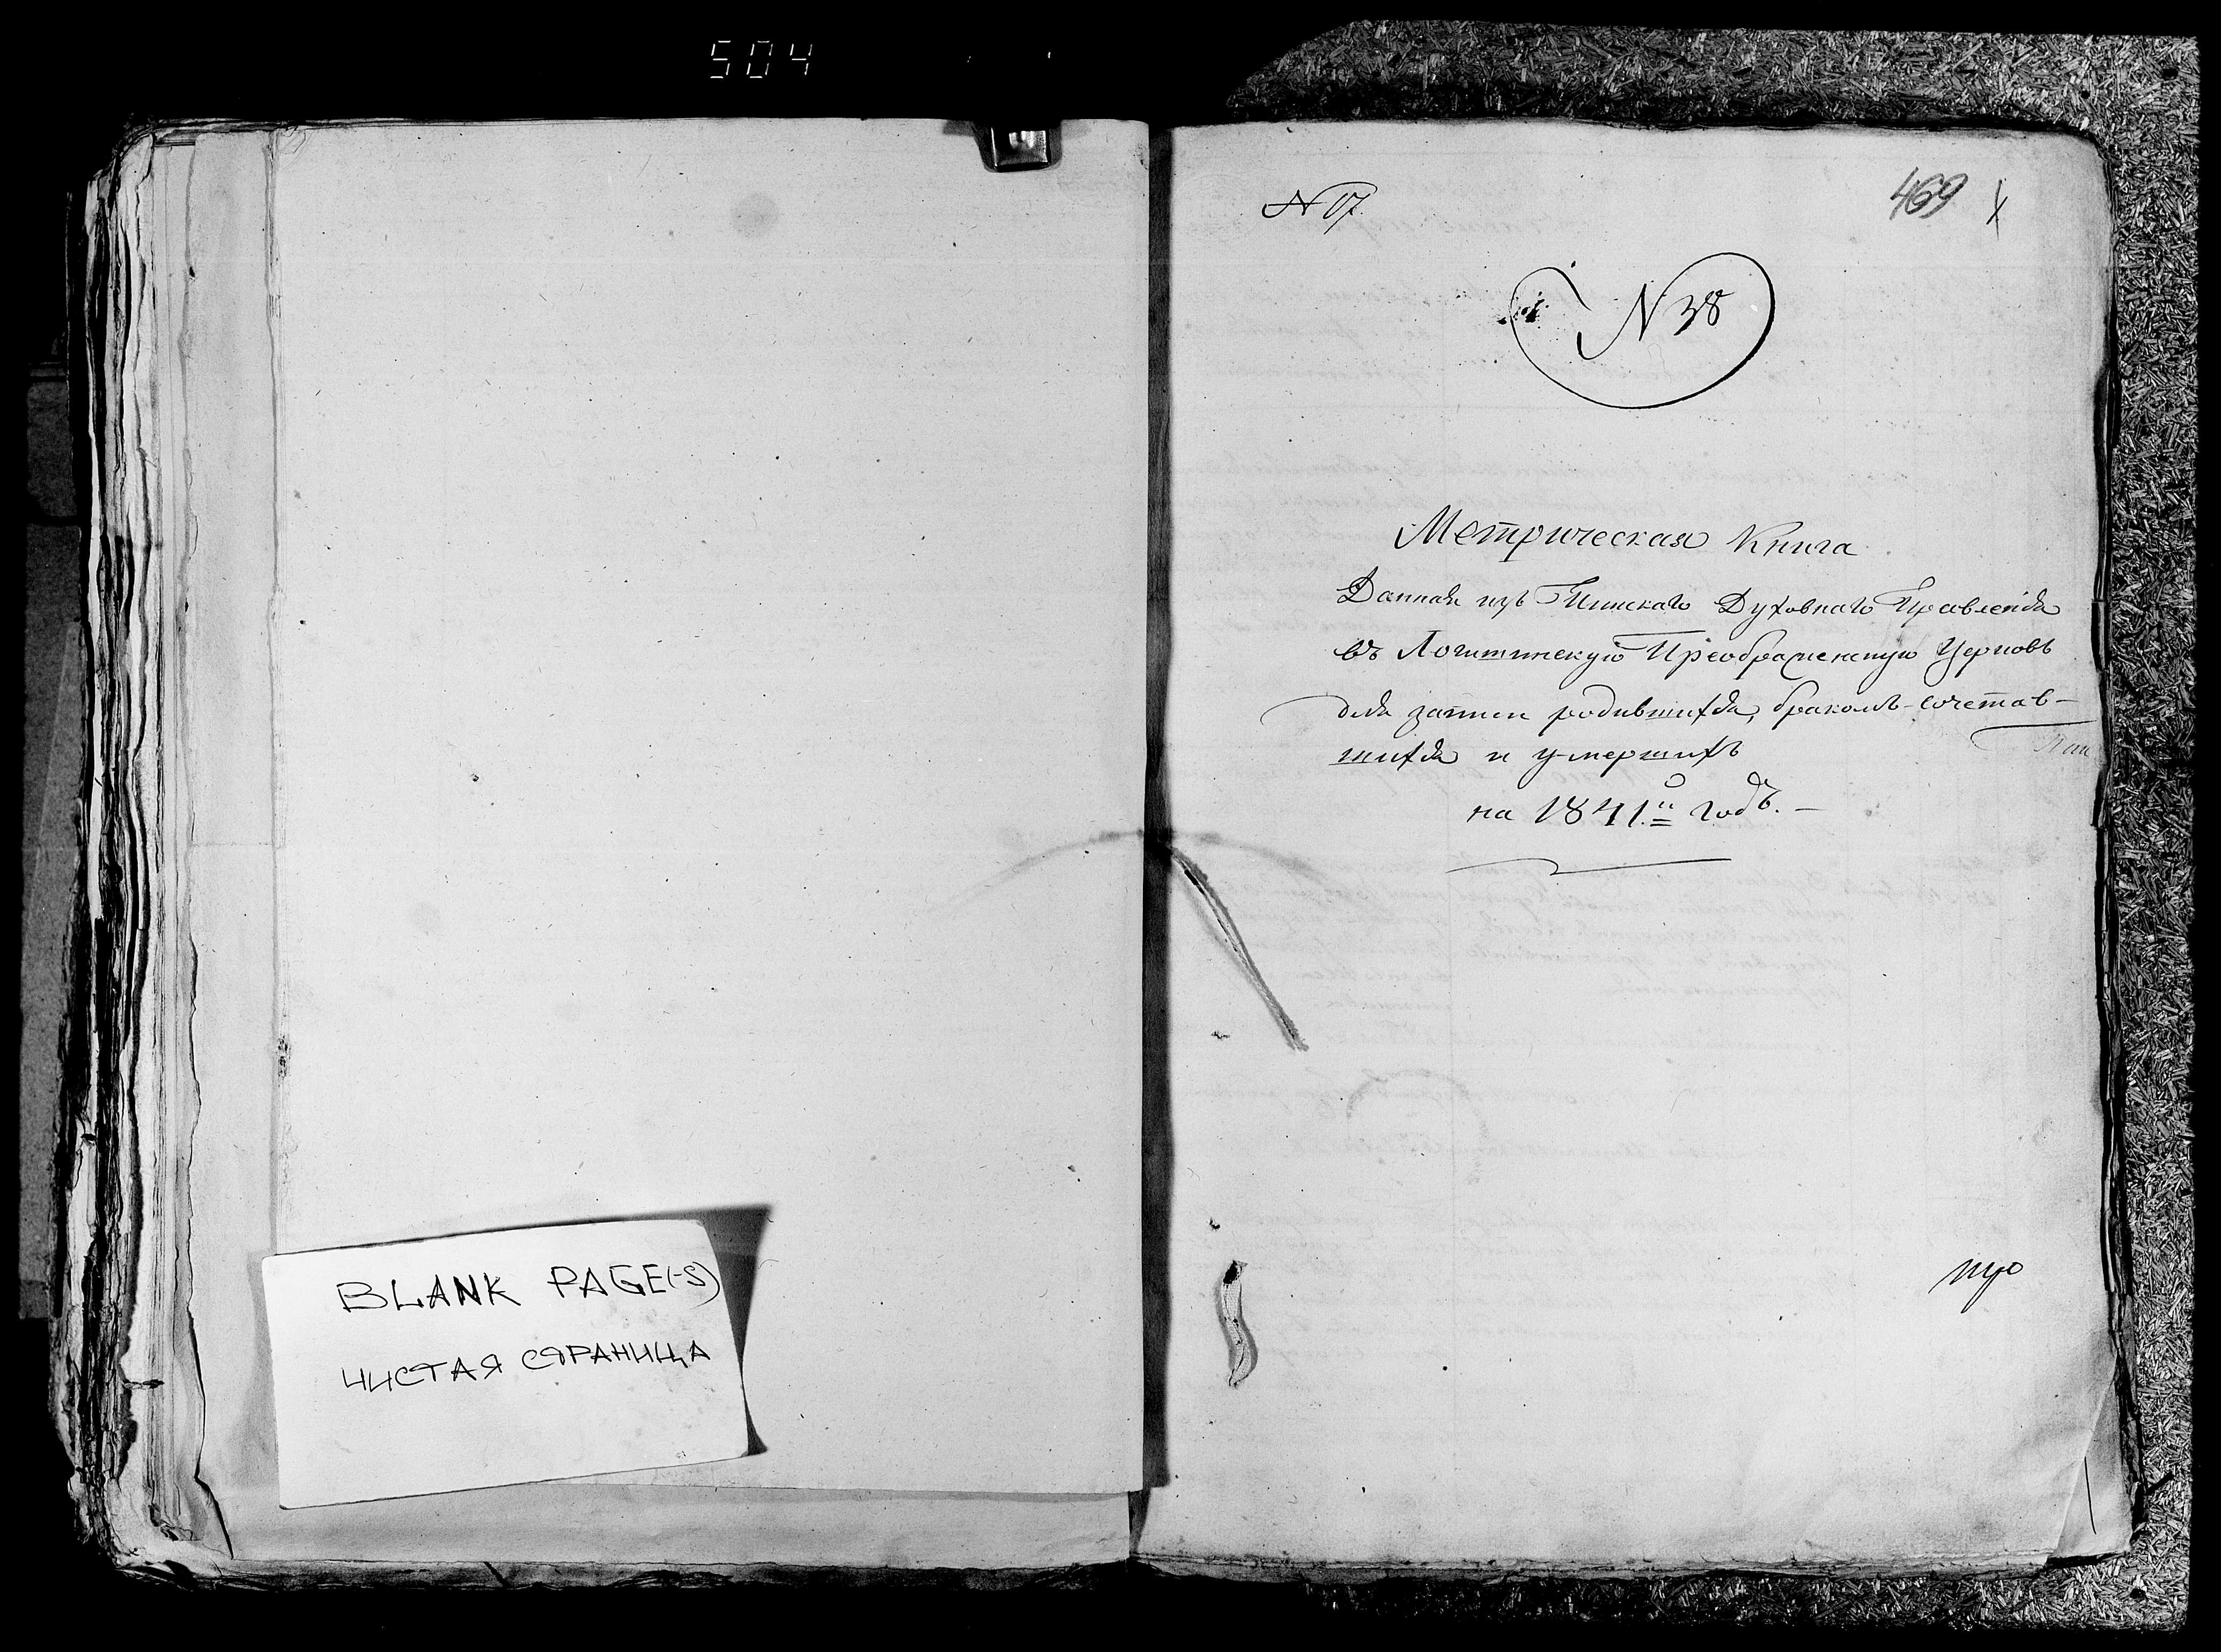 504
BLANK PAGE(-S)
ЧИСТАЯ СТРАНИЦА
N 17.
469
N 38
Метрическая Книга
Данная изъ Пинскаго Духовнаго Правленія
въ Логишинскую Преображенскую Церковь
для записи родившихся, бракомъ-сочетав-
шихся и умершихъ
на 1841.й годъ. —